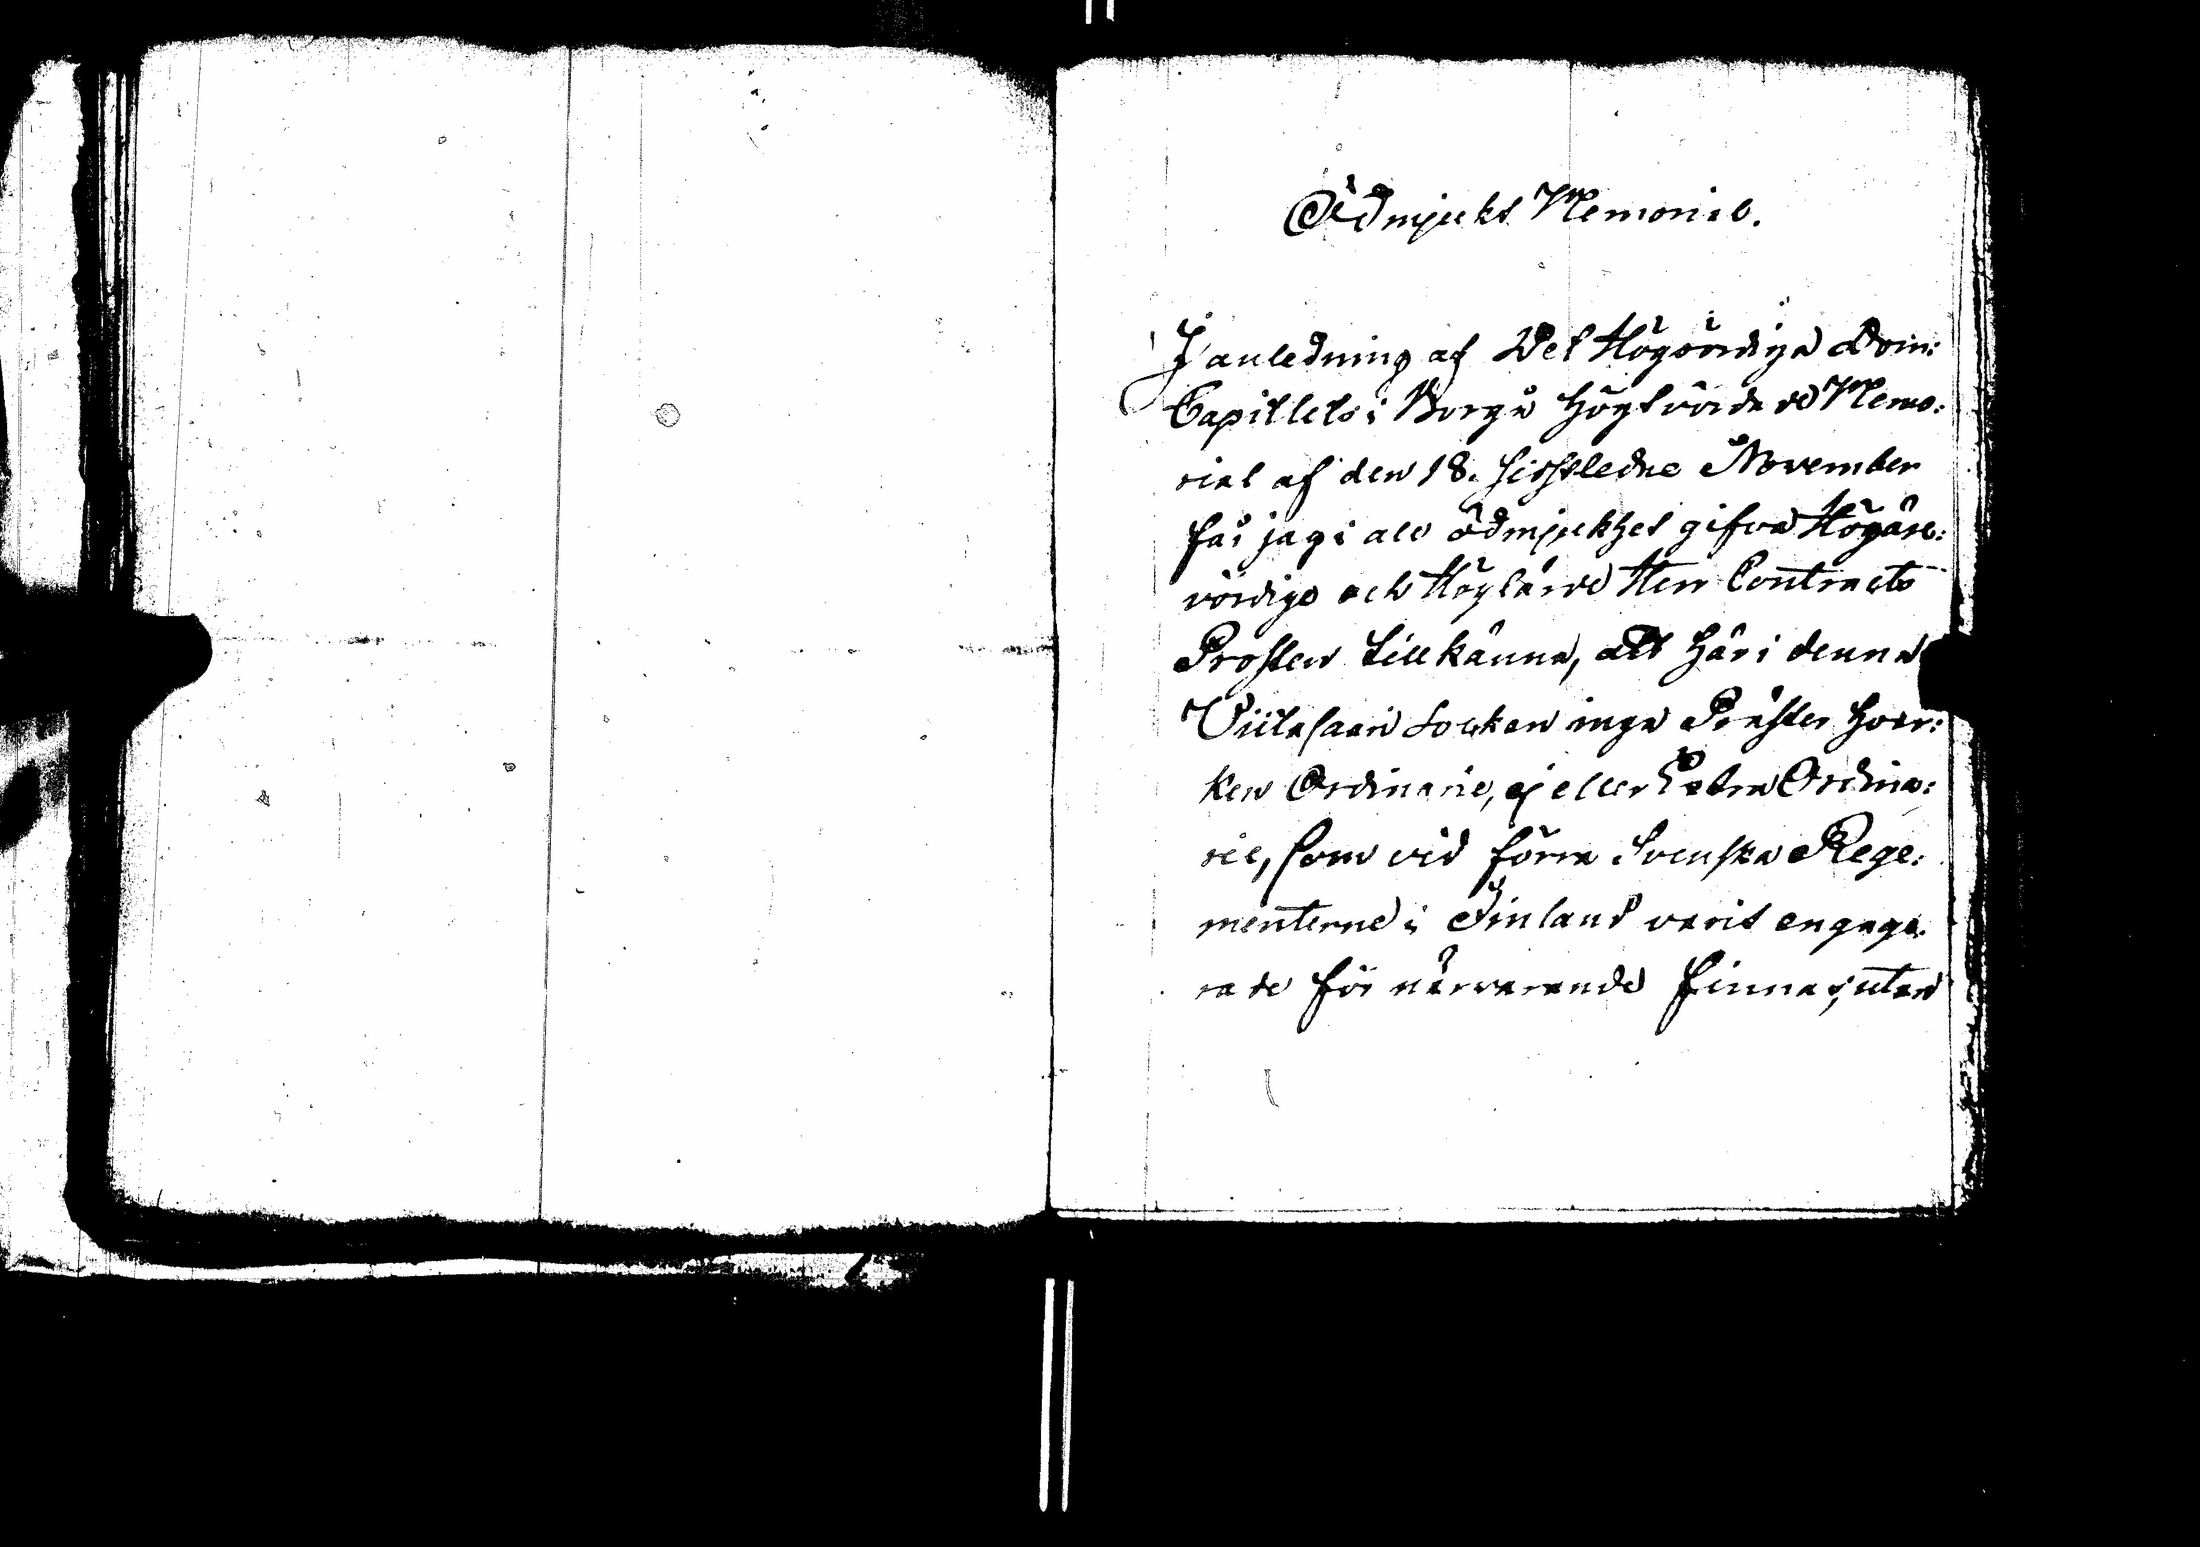 Ödmjukt Memorial.
I anledning af Det Högvördiga Dom:
Capitlets i Borgå Högtvördade Memo:
rial af den 18. sistledne November
får jag i all ödmjukhet gifva Högäre:
vördige och Höglärde Herr Contracts
Prosten tillkänna, att här i denna
Viitasaari Socken inga Präster hvar:
ken Ordinarie, ej eller Extra Ordina:
rie, som vid förra Svenska Rege:
menterne i Finland varit engage:
rade för närvarande finnas, utan